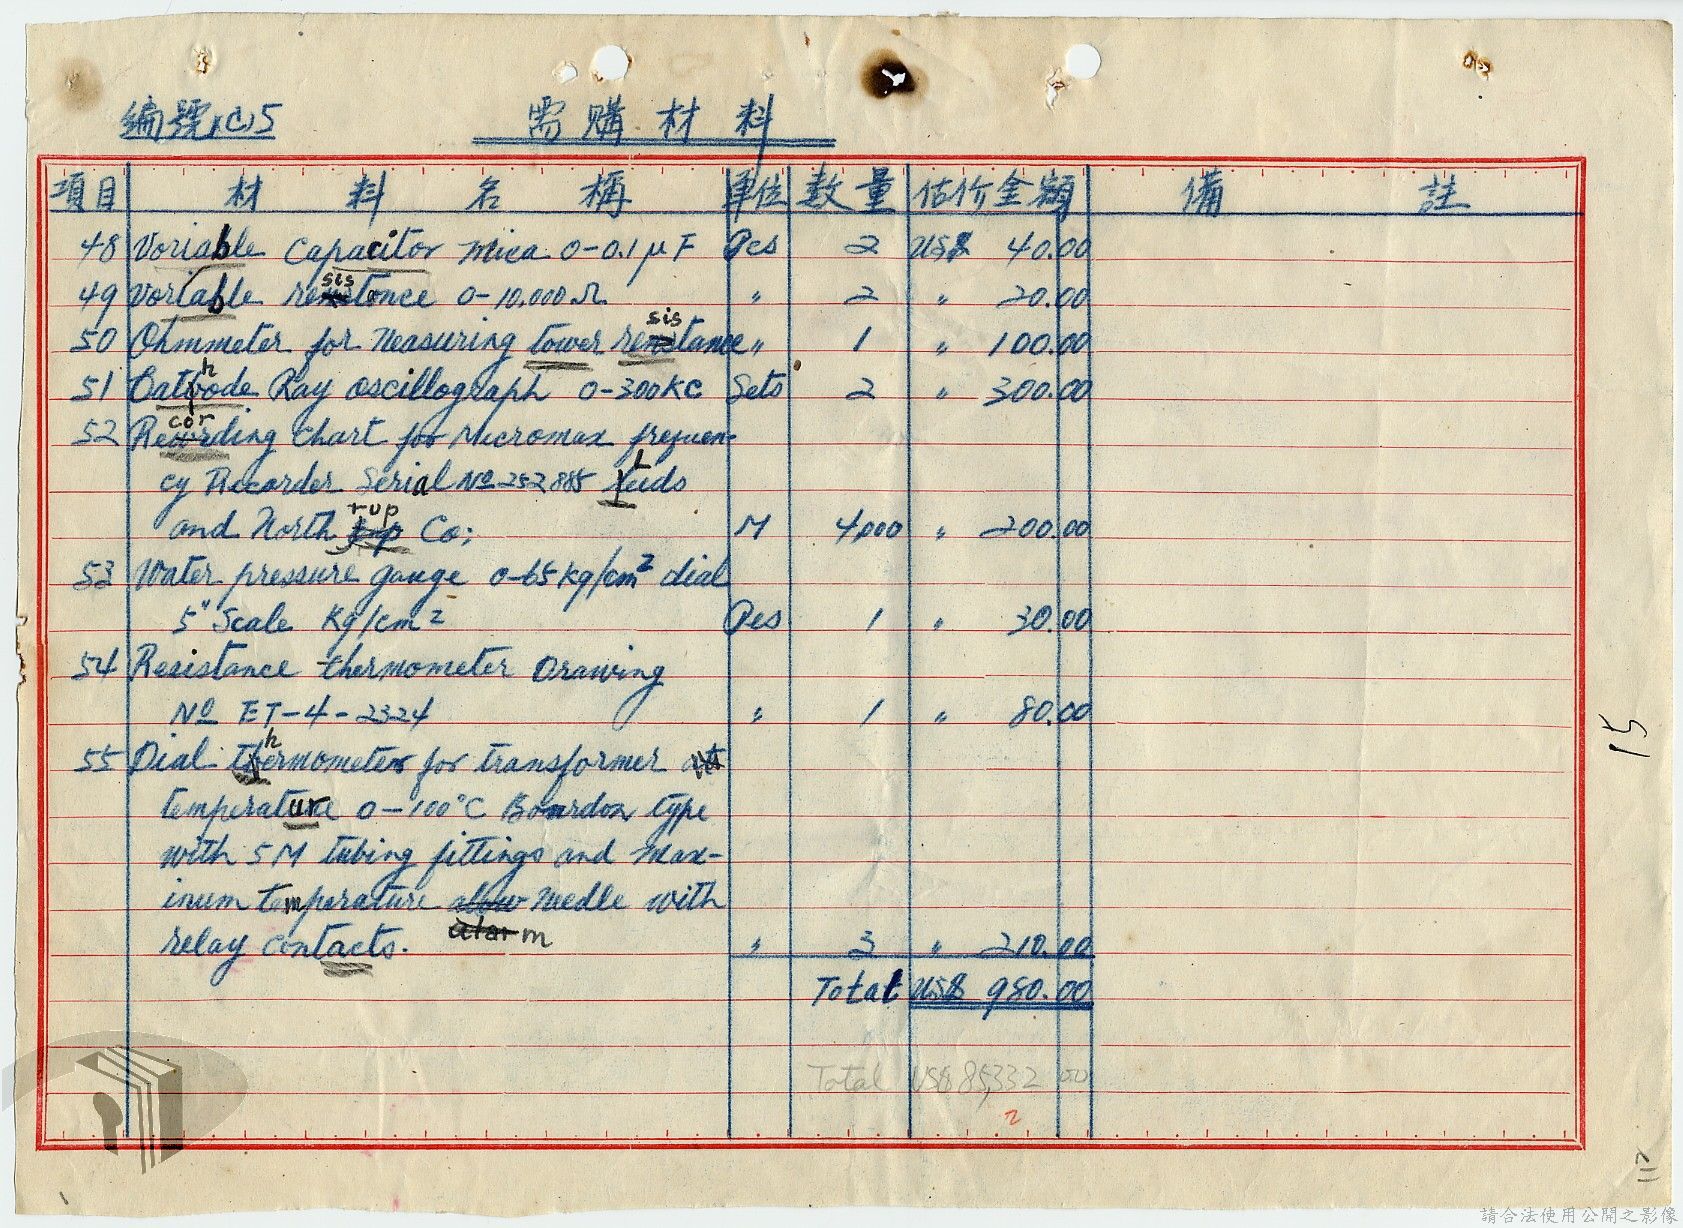 編號(C)5
需購材料
項目 材料名稱 單位 數量 估价金額 備註
48 Variable Capacitor Mica 0-0.1 μF Pcs 2 US$ 40.00
49 Variable resistance 0-10,000 Ω " 2 " 20.00
50 Ohmmeter for Measuring tower resistance " 1 " 100.00
51 Cathode Ray oscillograph 0-300KC Sets 2 " 300.00
52 Recording Chart for Micromax frequen-
cy Recorder Serial No 252885 Leeds
and North rup Co; M 4,000 " 200.00
53 Water pressure gauge 0-65 kg/cm² dial
5" Scale Kg/cm² Pcs 1 " 30.00
54 Resistance thermometer Drawing
No ET-4-2324 " 1 " 80.00
55 Dial thermometer for transformer
temperature 0-100°C Bourdon type
with 5M tubing fittings and max-
imum temperature alarm needle with
relay contacts. " 3 " 210.00
Total US$ 980.00
Total US$ 85,332 00
15
17
請合法使用公開之影像